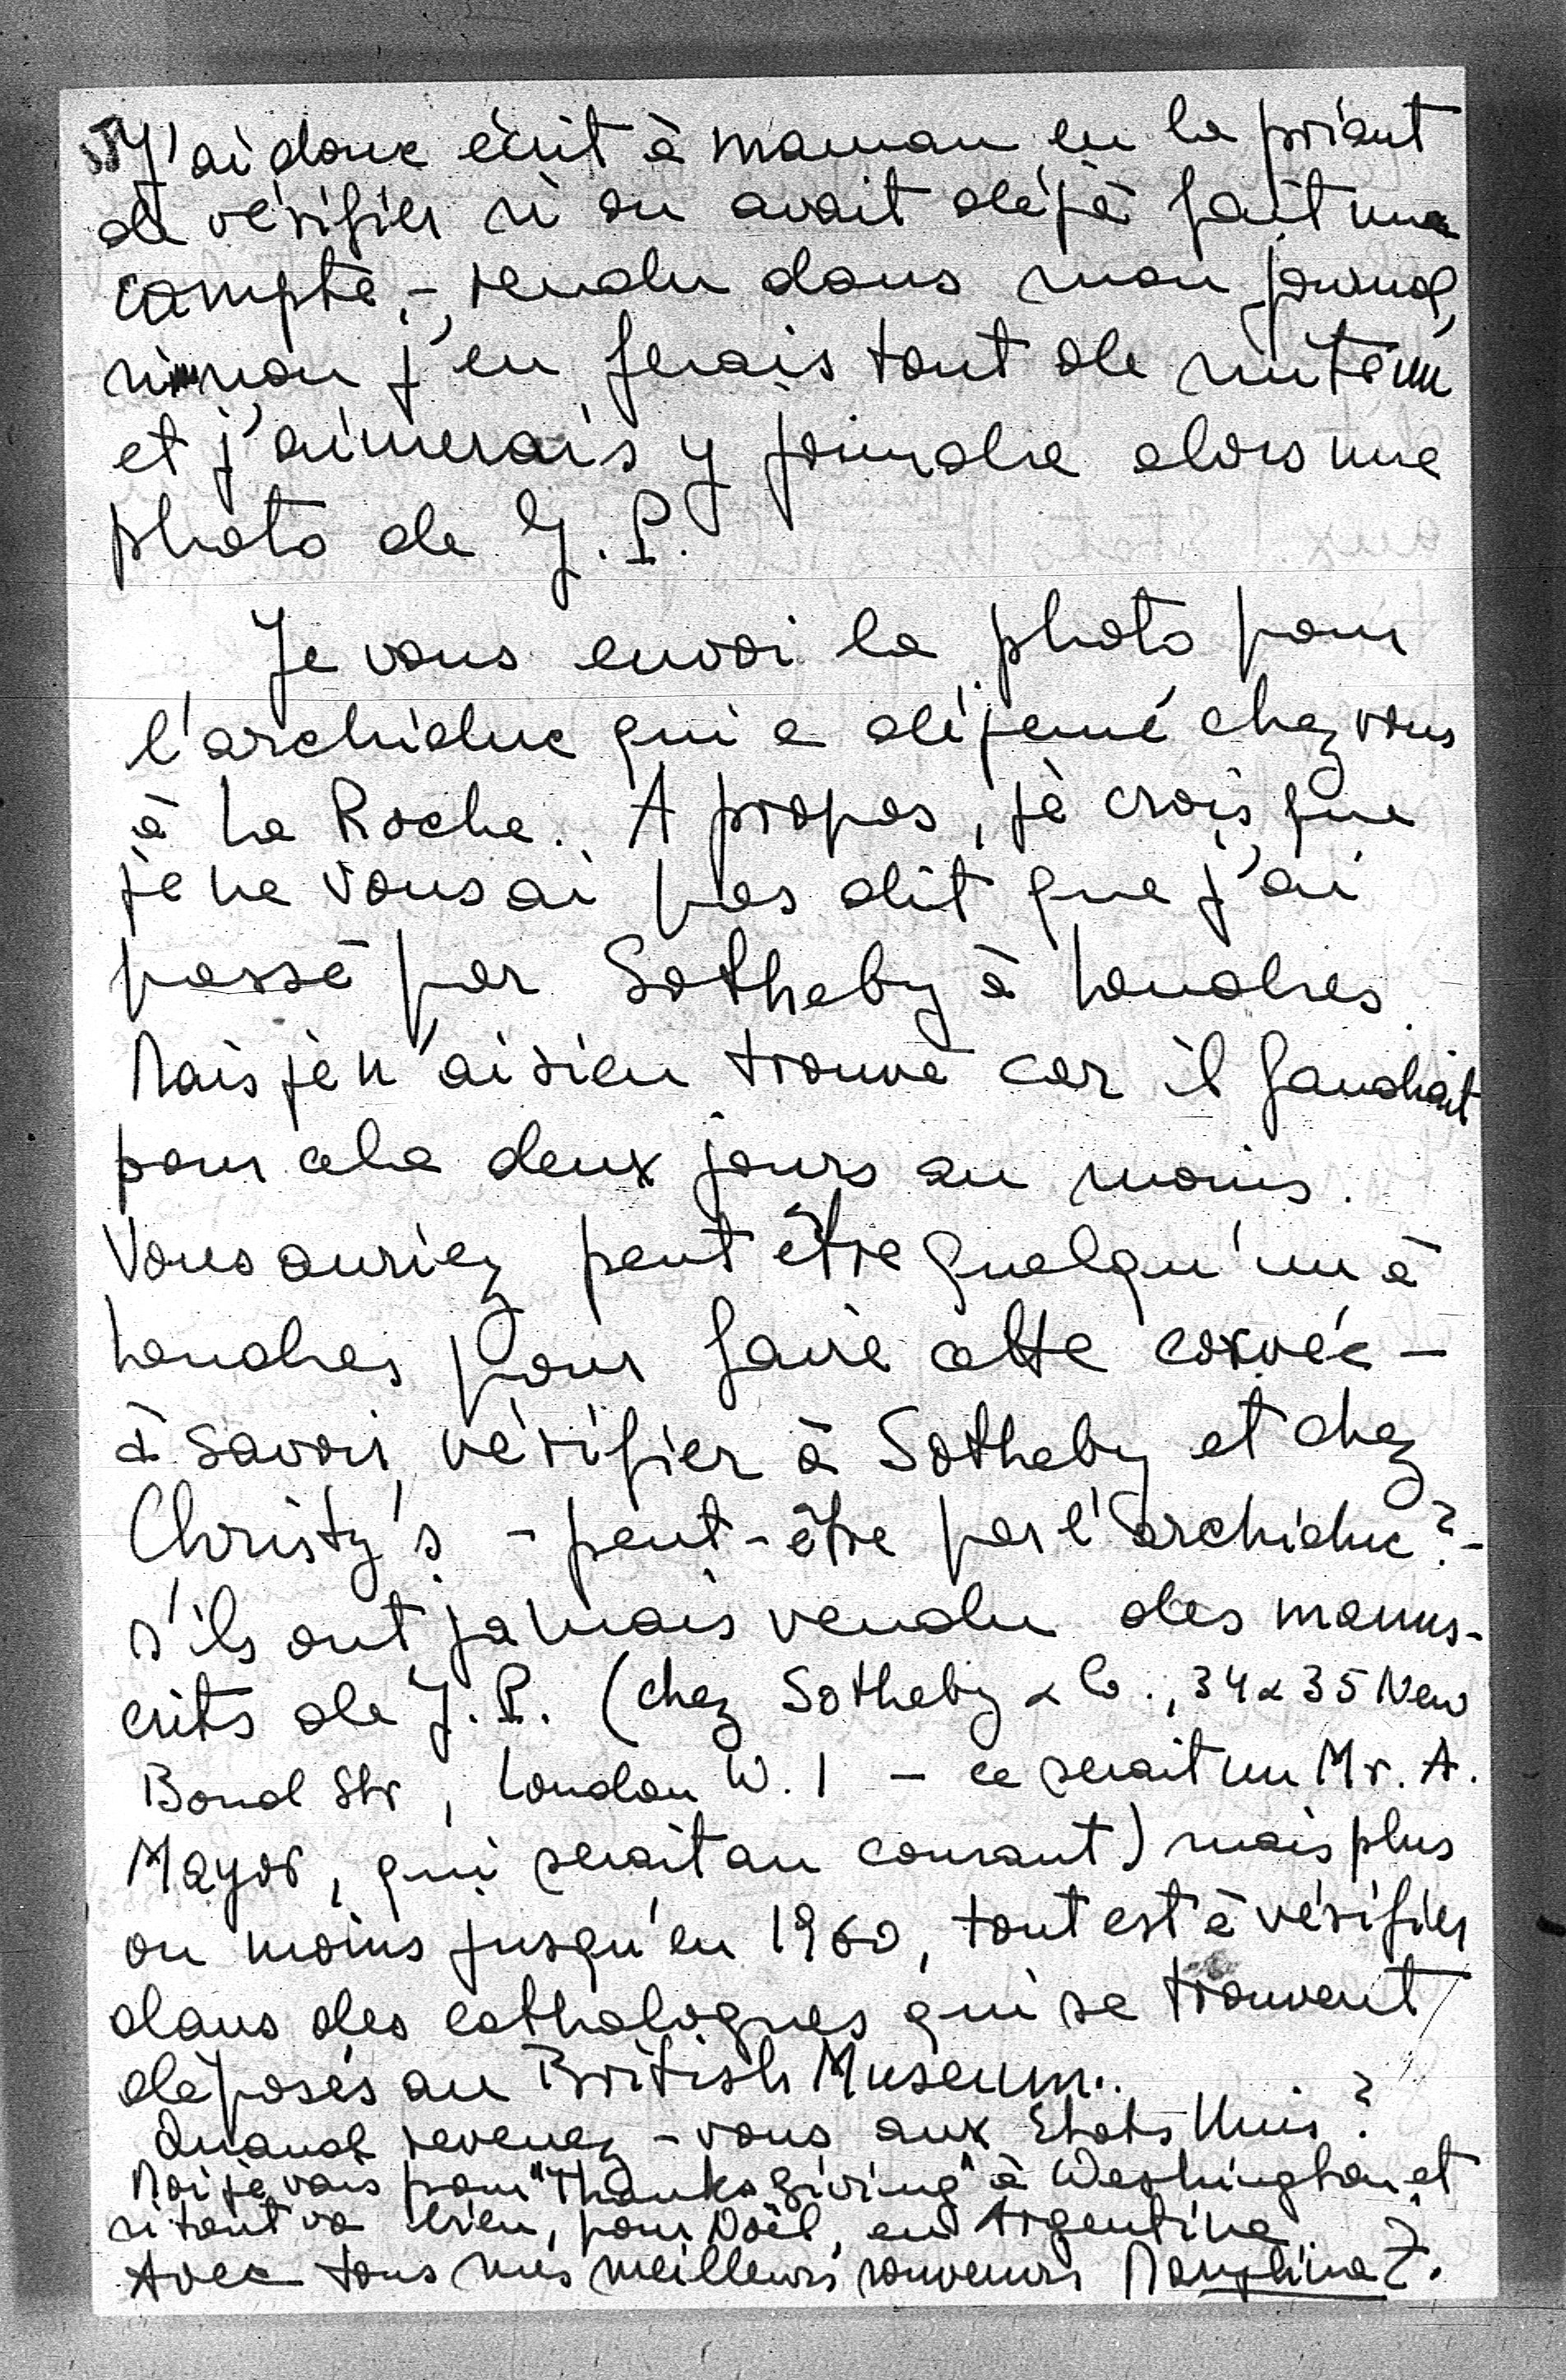 J'ai donc écrit à maman en la priant
de vérifier si on avait déjà fait une
compte-rendu dans mon journal,
sinon j'en ferais tout de suite un
et j'aimerais y joindre alors une
photo de J. P.
Je vous envoi la photo pour
l'archiduc qui a déjeuné chez vous
à La Roche. A propos, je crois que
je ne vous ai pas dit que j'ai
passé par Sotheby à Londres.
Mais je n'ai rien trouvé car il faudrait
pour cela deux jours au moins.
Vous auriez peut être quelqu'un à
Londres pour faire cette corvée -
à savoir, vérifier à Sotheby et chez
Christy's - peut-être par l'archiduc? -
s'ils ont jamais vendu des manus-
crits de J. P. (chez Sotheby & Co., 34 & 35 New
Bond Str, London W. 1 - ce serait un Mr. A.
Mayor, qui serait au courant) mais plus
ou moins jusqu'en 1960, tout est à vérifier
dans des cathalogues qui se trouvent
déposés au British Museum.
Quand revenez-vous aux Etats Unis?
Moi je vais pour "Thanksgiving" à Washington et
si tout va bien, pour Noël, en Argentine.
Avec tous mes meilleurs souvenirs